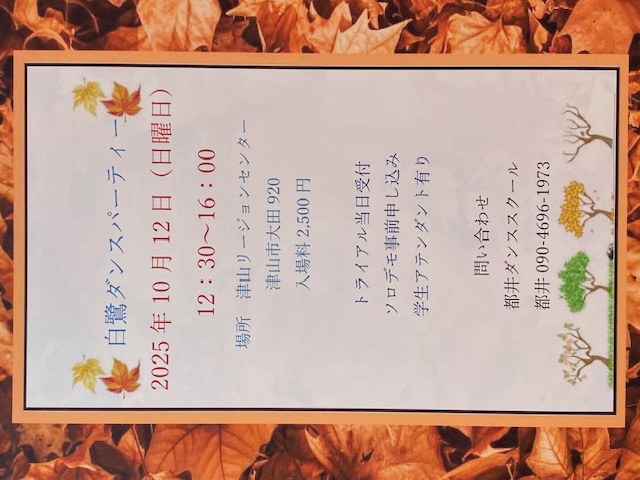 白鷺ダンスパーティー
2025年10月12日（日曜日）
12：30～16：00
場所　津山リージョンセンター
津山市大田920
入場料2,500円
トライアル当日受付
ソロデモ事前申し込み
学生アテンダント有り
問い合わせ
都井ダンススクール
都井 090-4696-1973